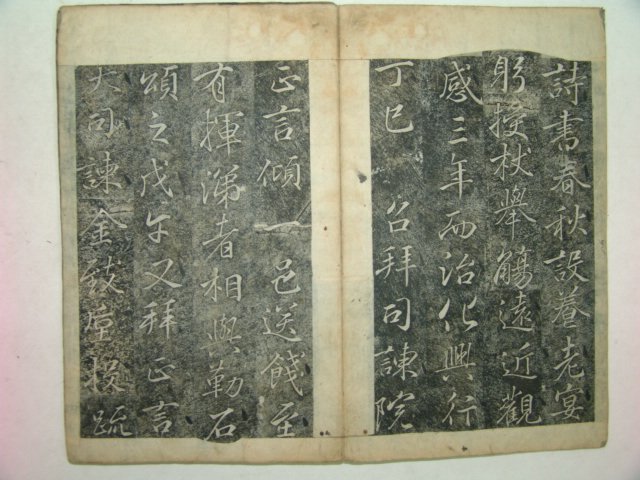 詩書春秋設養老宴
躬授杖擧觴遠近觀
感三年而治化興行
丁巳 召拜司諫院
正言傾一邑送餞至
有揮涕者相與勒石
頌之戊午又拜正言
大司諫金鉽堂投疏